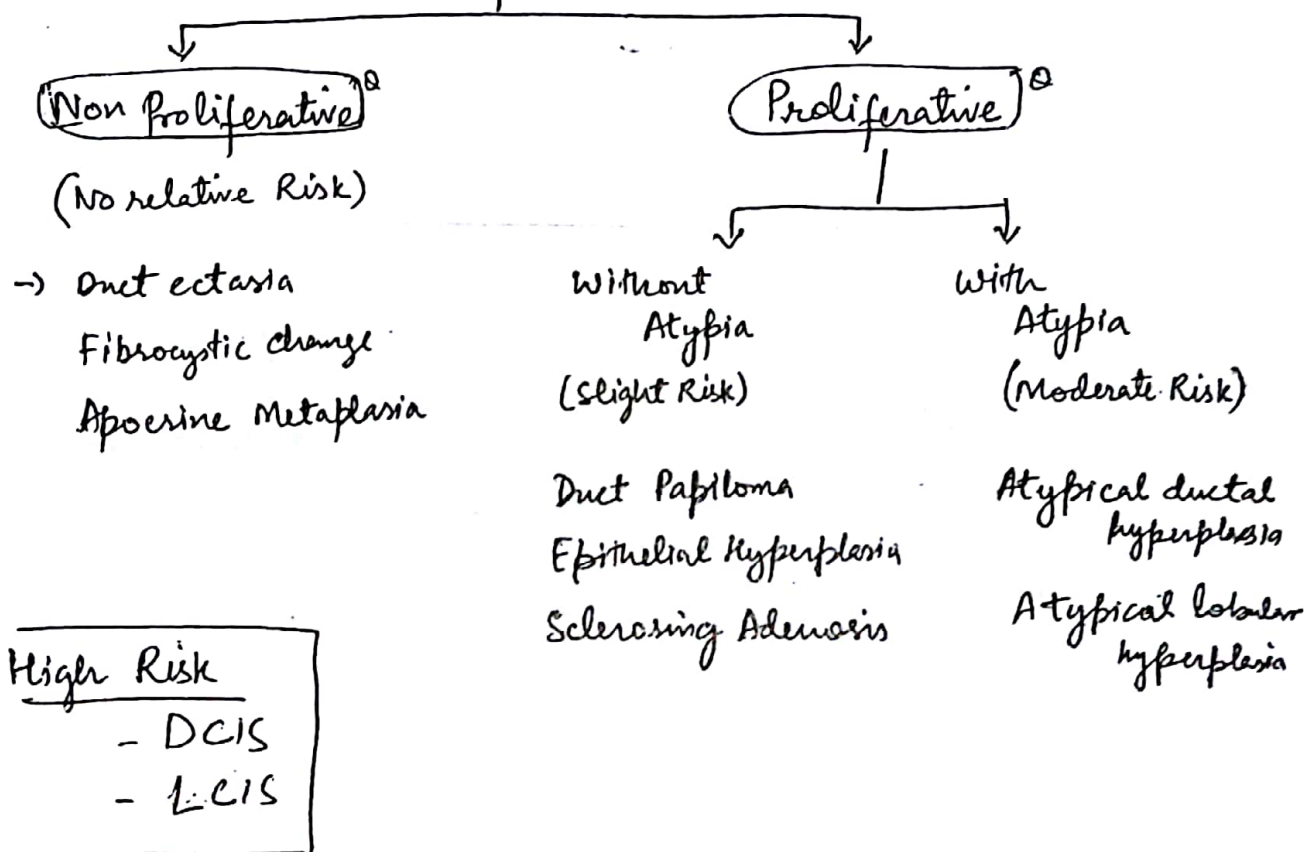 Non Proliferative Q
(No relative Risk)
→ Duct ectasia
Fibrocystic change
Apocrine Metaplasia
Proliferative Q
Without
Atypia
(Slight Risk)
Duct Papiloma
Epithelial Hyperplasia
Sclerosing Adenosis
With
Atypia
(Moderate Risk)
Atypical ductal
hyperplasia
Atypical lobular
hyperplasia
High Risk
- DCIS
- LCIS